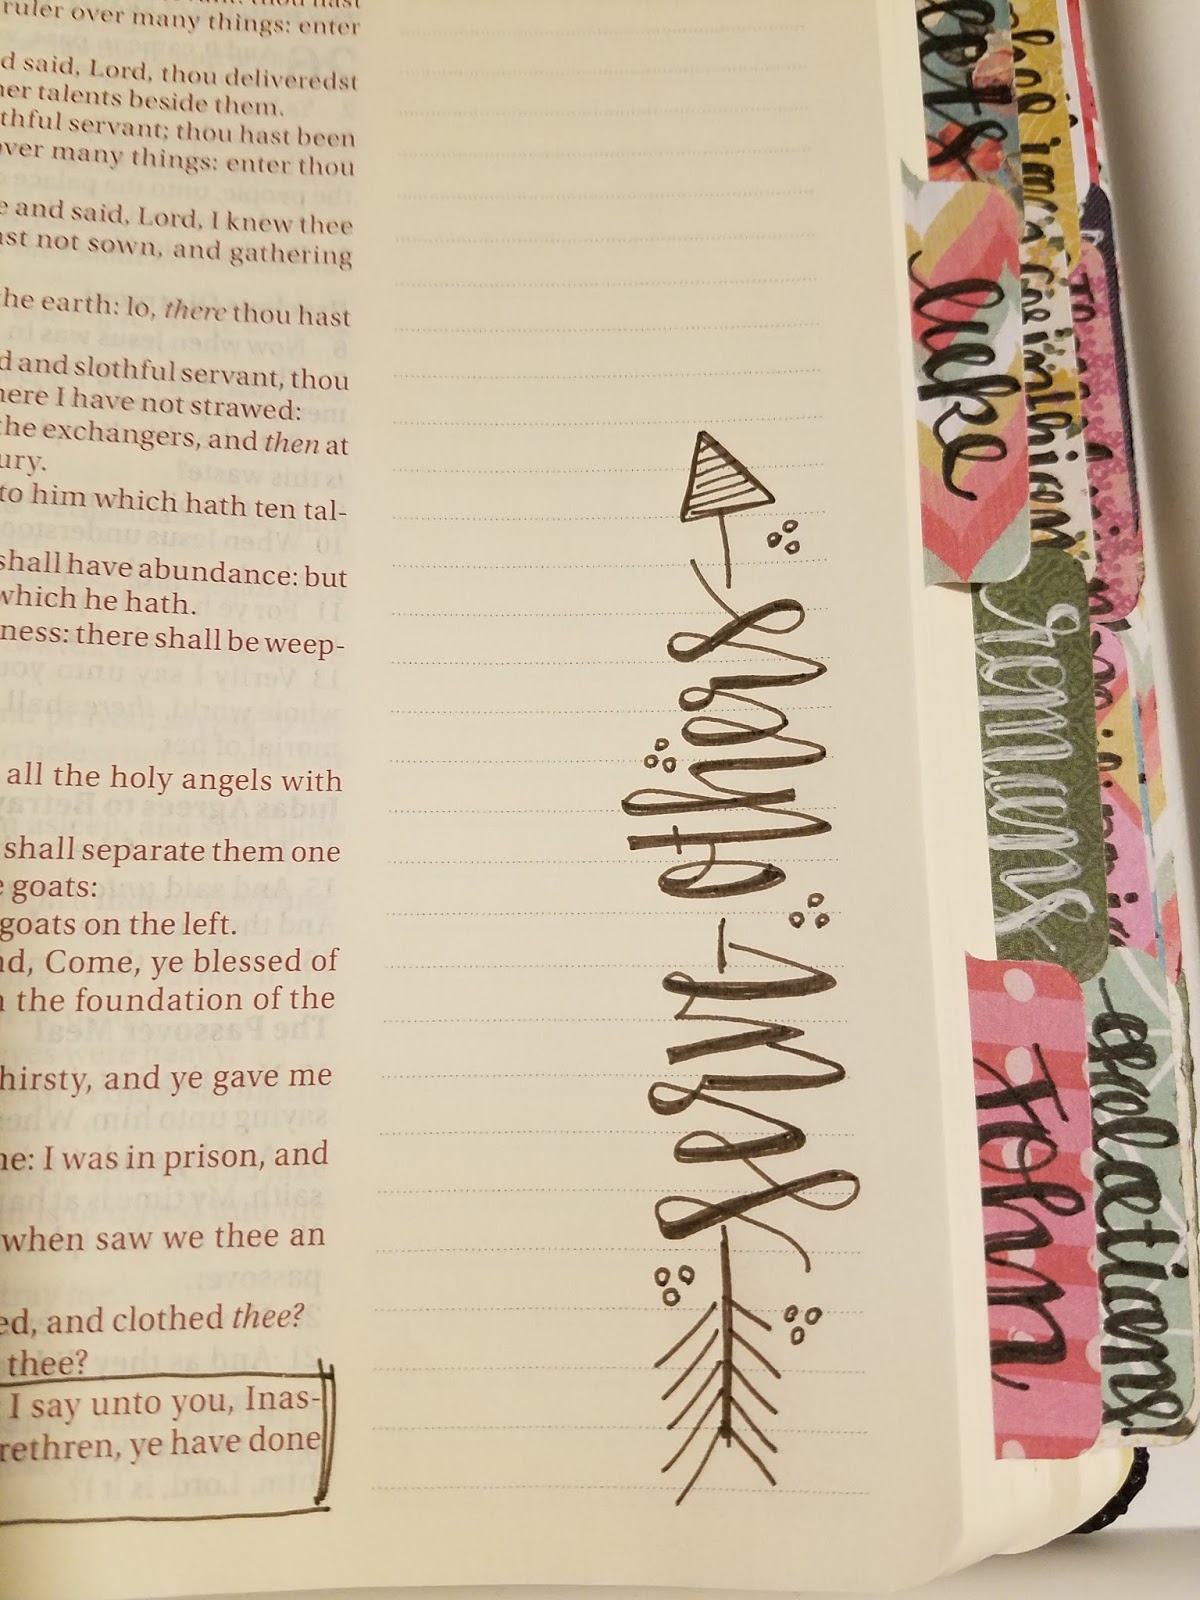 ruler over many things: enter
d said, Lord, thou deliveredst
her talents beside them.
thful servant; thou hast been
over many things: enter thou
e and said, Lord, I knew thee
ast not sown, and gathering
he earth: lo, there thou hast
d and slothful servant, thou
here I have not strawed:
the exchangers, and then at
ury.
to him which hath ten tal-
shall have abundance: but
which he hath.
ness: there shall be weep-
all the holy angels with
shall separate them one
e goats:
goats on the left.
nd, Come, ye blessed of
n the foundation of the
hirsty, and ye gave me
ne: I was in prison, and
when saw we thee an
ed, and clothed thee?
thee?
I say unto you, Inas-
rethren, ye have done
serve others
luke
Romans
John